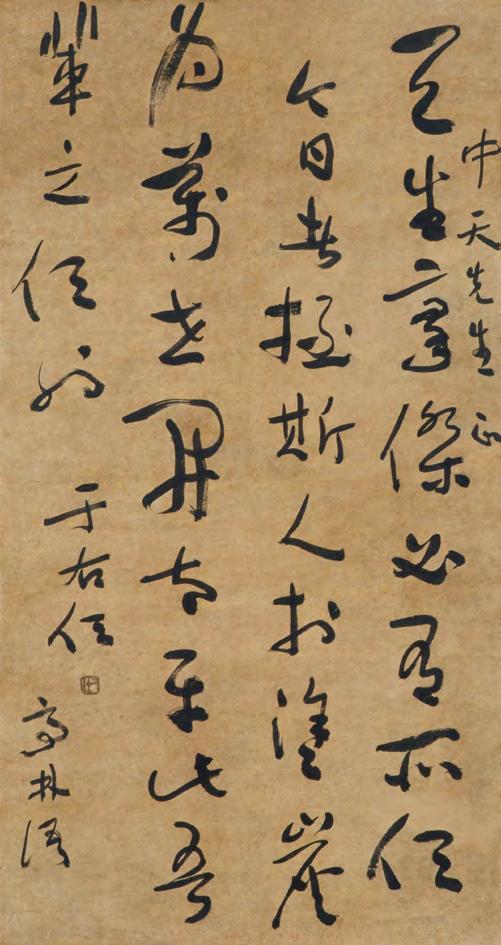 中天先生正
天生豪傑必有所任
今日者拯斯人於塗炭
為萬世開太平此吾
輩之任也
于右任
高林語